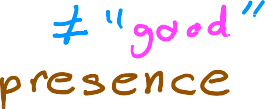 ≠ “good”
presence